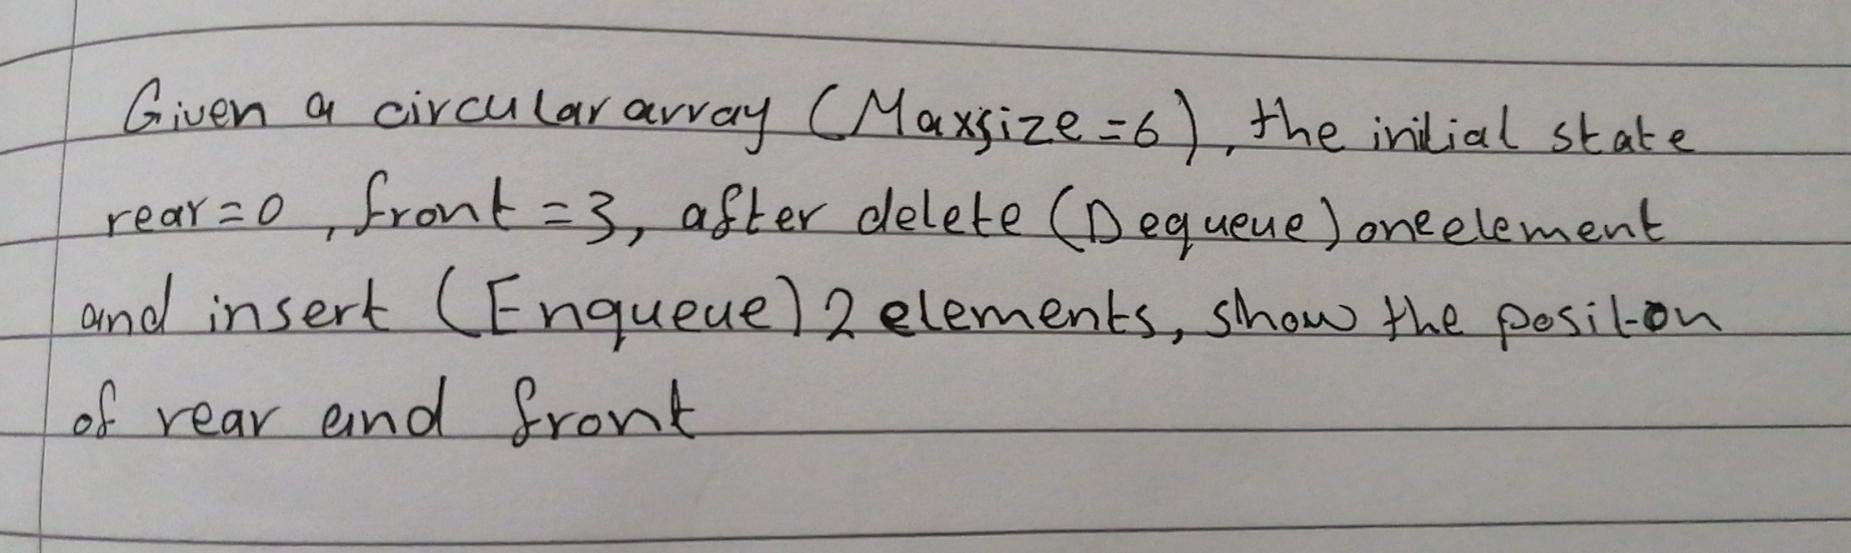 Given a circular array (Maxsize=6), the initial state
rear=0, front=3, after delete (Dequeue) one element
and insert (Enqueue) 2 elements, show the position
of rear and front